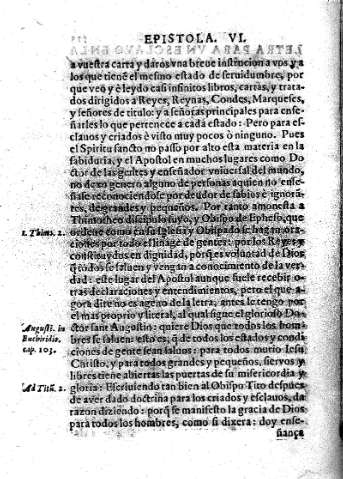 EPISTOLA. VI.
a vuestra carta y daros vna breue instrucion a vos, y a
los que tienē el mesmo estado de seruidumbre, por
que veo y è leydo casi infinitos libros, cartas, y trata-
dos dirigidos a Reyes, Reynas, Condes, Marqueses,
y señores de titulo: y a señoras principales para ense-
ñarles lo que pertenece a cada estado: Pero para es-
clauos y criados è visto muy pocos ò ninguno. Pues
el Spiritu sancto no passo por alto esta materia en la
sabiduria, y el Apostol en muchos lugares como Do
ctor de las gētes y enseñador vniuersal del mundo,
no dexo genero alguno de personas a quien no ense-
ñasse reconociendose por deudor de sabios è ignorā
tes, de grandes y pequeños. Por tanto amonesta a
Thimotheo discipulo suyo, y Obispo de Epheso, que
1. Thimo. 2.
ordene como en su Iglesia y Obispado se hagan ora-
ciones por todo el linage de gente: por los Reyes y
constituydos en dignidad, porq̄ es voluntad de Dios
q̄ todo se saluen y vengan a conocimiento de la ver-
dad: este lugar del Apostol aunque suele recebir o
tras declaraciones y entendimientos, pero el que a-
gora dire no es ageno de la letra, antes le tengo por
el mas proprio y literal, al qual sigue el glorioso Do
Augusti. in
Enchiridio.
cap. 103.
ctor sant Augustin: quiere Dios que todos los hom
bres se saluen: esto es, q̄ de todos los estados y condi
ciones de gente sean saluos: para todos murio Iesu
Christo, y para todos grandes y pequeños, sieruos y
libres tiene abiertas las puertas de su misericordia y
Ad Titū. 2.
gloria: Escriuiendo tan bien al Obispo Tito despues
de aver dado doctrina para los criados y esclauos, da
razon diziendo: porq̄ se manifesto la gracia de Dios
para todos los hombres, como si dixera: doy ense-
ñança